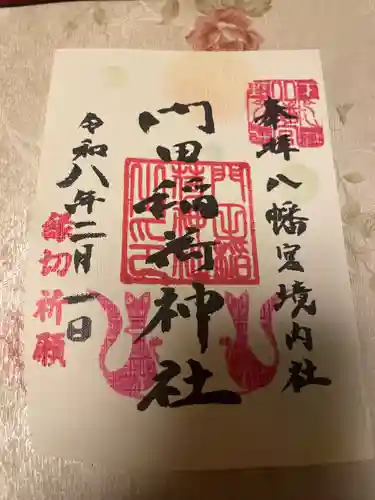 奉拝 八幡宮境内社
門田稲荷神社
令和八年二月一日
縁切祈願